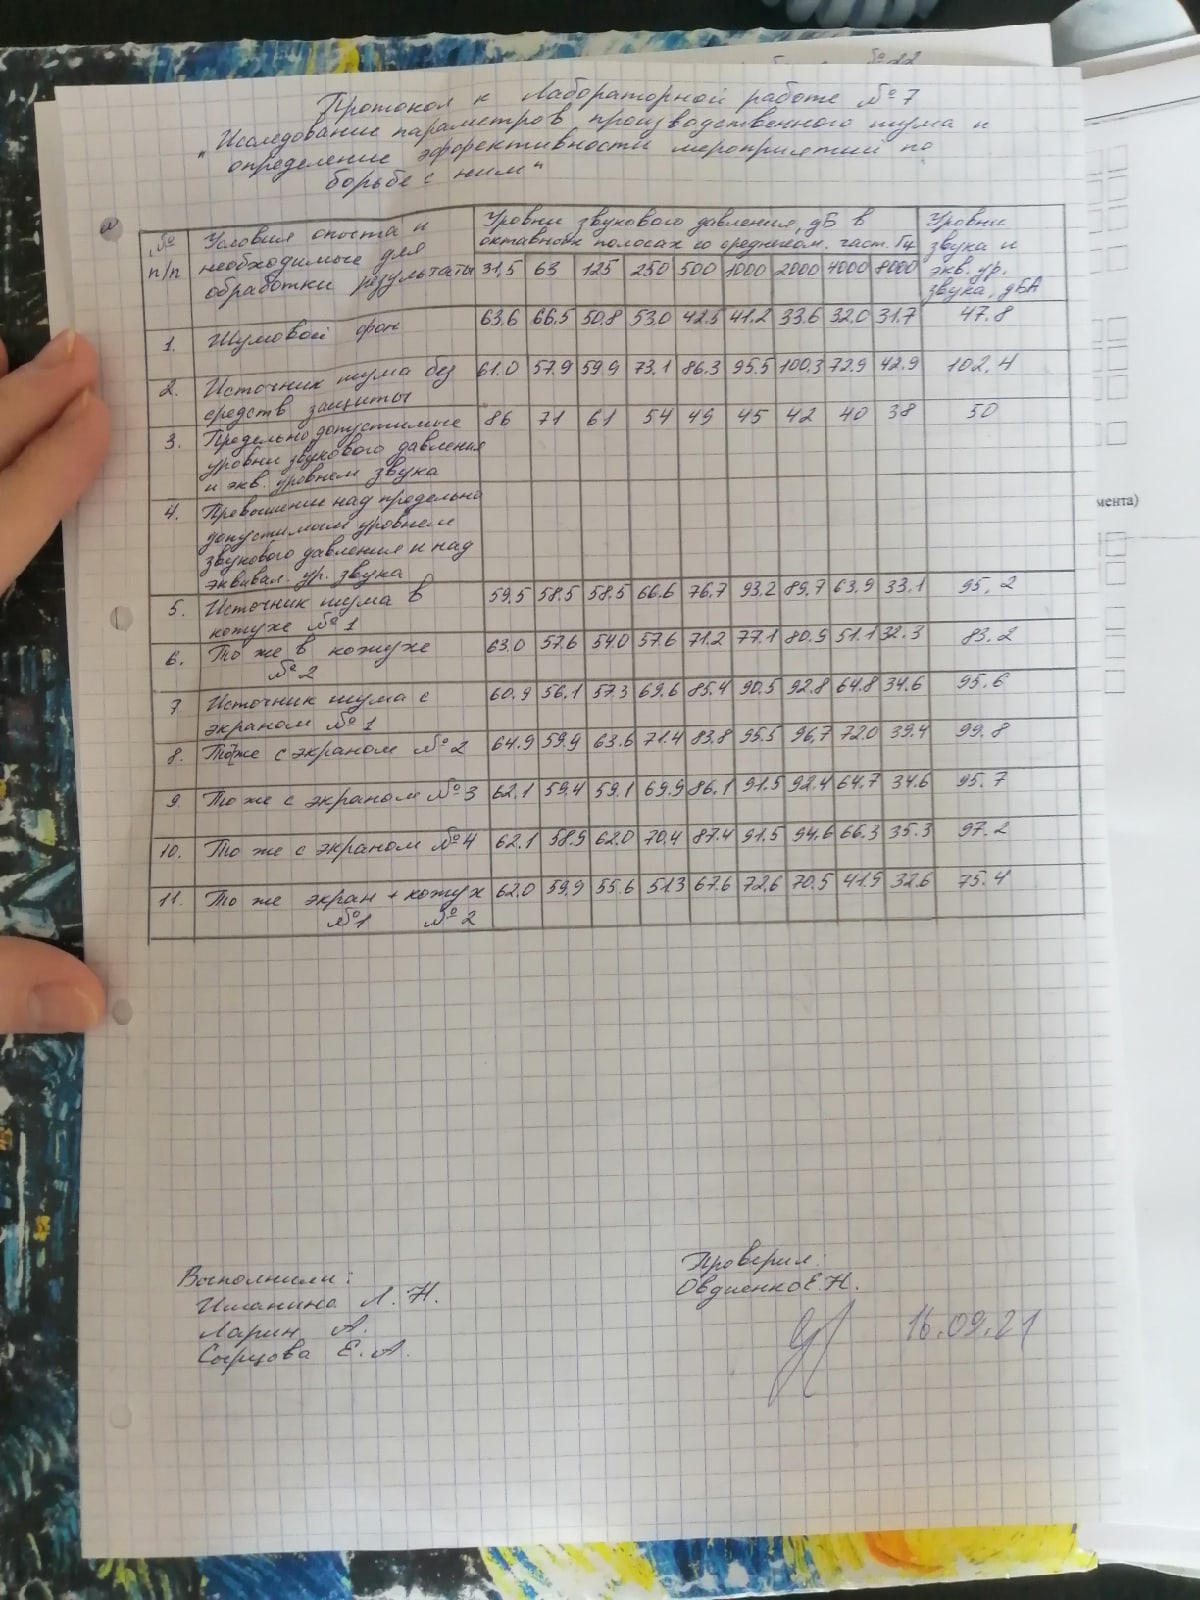 №22
Протокол к Лабораторной работе №7
„Исследование параметров производственного шума и
определение эффективности мероприятий по
борьбе с ним"
№ п/п | Условия опыта и необходимые для обработки результаты | Уровни звукового давления, дБ в октавных полосах со среднегеом. част. Гц | Уровни звука и экв. ур. звука, дБА
31,5 | 63 | 125 | 250 | 500 | 1000 | 2000 | 4000 | 8000
1. | Шумовой фон | 63.6 | 66.5 | 50.8 | 53.0 | 42.5 | 41.2 | 33.6 | 32.0 | 31.7 | 47.8
2. | Источник шума без средств защиты | 61.0 | 57.9 | 59.9 | 73.1 | 86.3 | 95.5 | 100.3 | 72.9 | 42.9 | 102.4
3. | Предельно допустимые уровни звукового давления и экв. уровнем звука | 86 | 71 | 61 | 54 | 49 | 45 | 42 | 40 | 38 | 50
4. | Превышение над предельно допустимым уровнем звукового давления и над эквивал. ур. звука
5. | Источник шума в кожухе №1 | 59.5 | 58.5 | 58.5 | 66.6 | 76.7 | 93.2 | 89.7 | 63.9 | 33.1 | 95.2
6. | То же в кожухе №2 | 63.0 | 57.6 | 54.0 | 57.6 | 71.2 | 77.1 | 80.9 | 51.1 | 32.3 | 83.2
7 | Источник шума с экраном №1 | 60.9 | 56.1 | 57.3 | 69.6 | 85.4 | 90.5 | 92.8 | 64.8 | 34.6 | 95.6
8. | То же с экраном №2 | 64.9 | 59.9 | 63.6 | 71.4 | 83.8 | 95.5 | 96,7 | 72.0 | 39.4 | 99.8
9. | То же с экраном №3 | 62.1 | 59.4 | 59.1 | 69.9 | 86.1 | 91.5 | 92.4 | 64.7 | 34.6 | 95.7
10. | То же с экраном №4 | 62.1 | 58.9 | 62.0 | 70.4 | 87.4 | 91.5 | 94.6 | 66.3 | 35.3 | 97.2
11. | То же экран + кожух №1 №2 | 62.0 | 59.9 | 55.6 | 51.3 | 67.6 | 72.6 | 70.5 | 41.9 | 32.6 | 75.4
мента)
Выполнили:
Л. Н.
Ларин А.
Сырцова Е. А.
Проверил:
Овдиенко Е.Н.
16.09.21